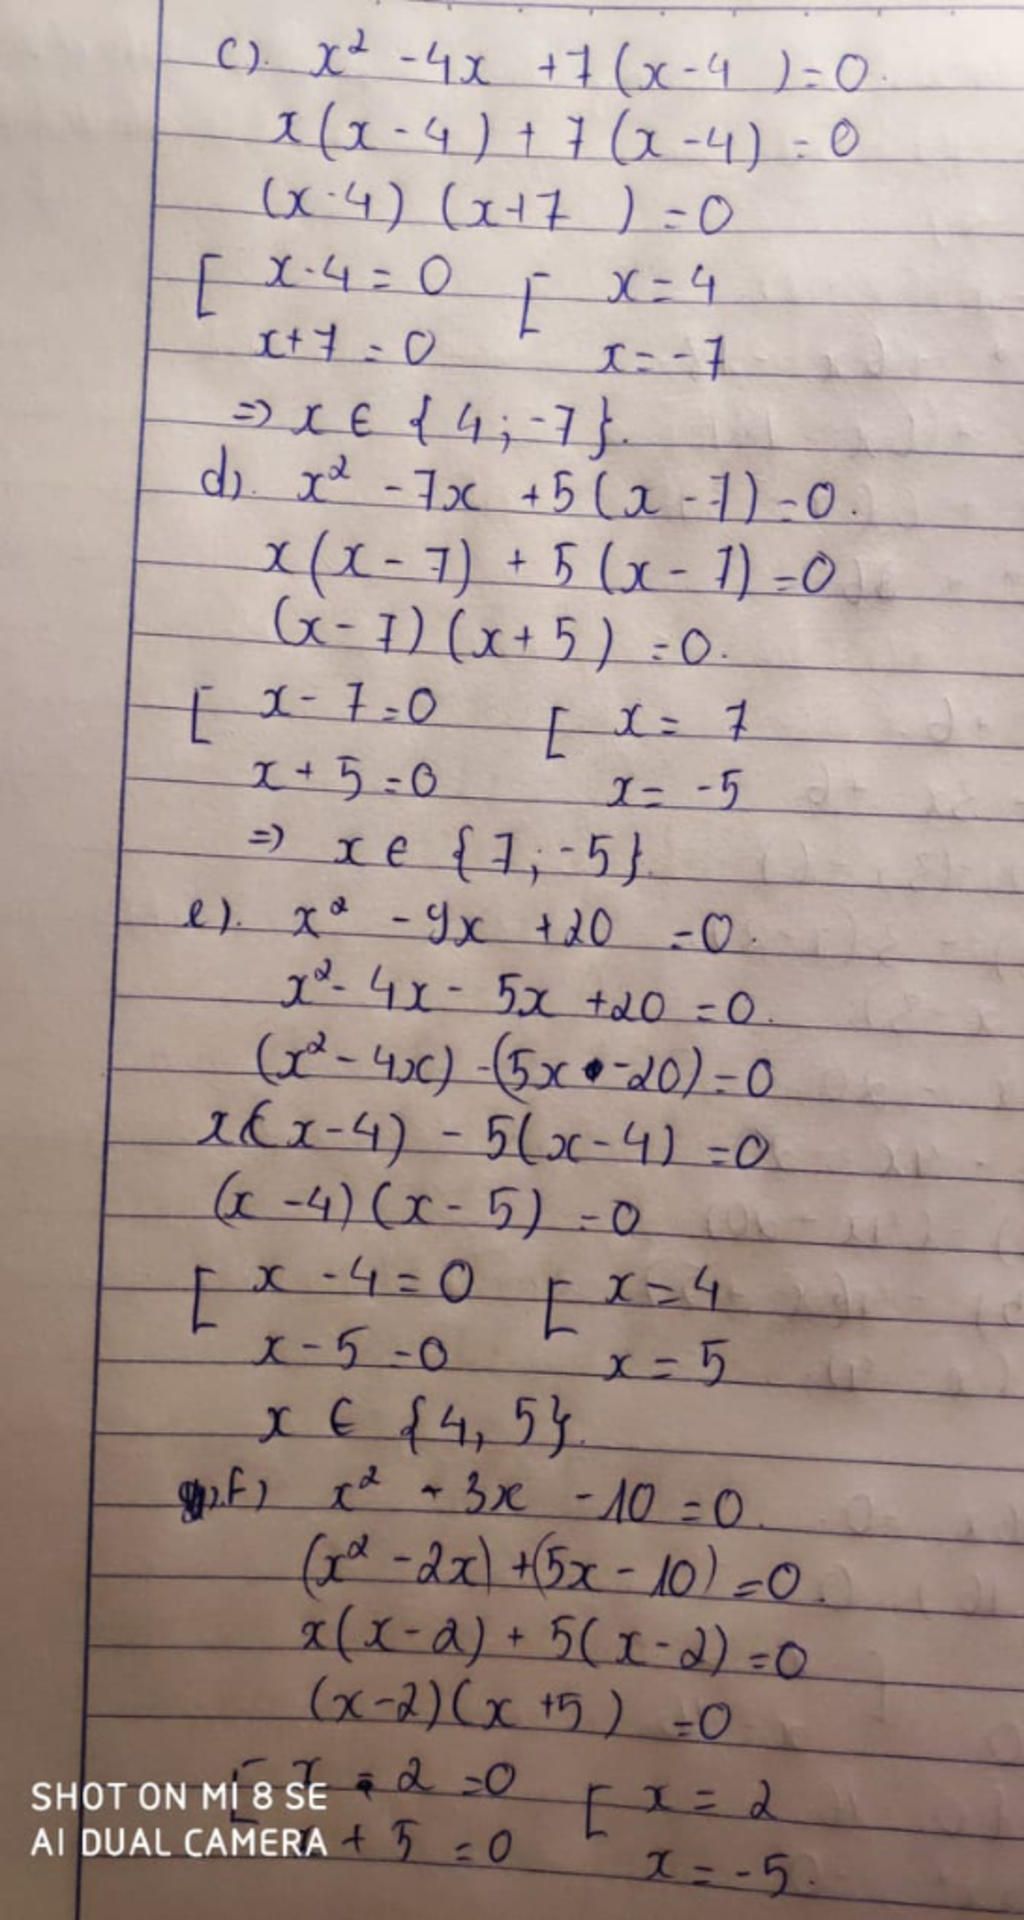 c). x² -4x +7(x-4 )=0.
x(x-4) + 7(x-4) = 0
(x-4) (x+7 ) = 0
[ x-4 = 0 [ x = 4
x+7 = 0 x = -7
=> x ∈ {4; -7}.
d). x² - 7x +5(x-7)=0.
x(x-7) + 5(x-7)=0
(x-7)(x+5) =0.
[ x-7=0 [ x = 7
x+5=0 x = -5
=> x ∈ {7; -5}
e). x² -9x +20 =0.
x²- 4x - 5x +20 =0.
(x²-4x) -(5x -20)=0
x(x-4) - 5(x-4) =0
(x-4)(x-5) =0
[ x -4=0 [ x=4
x-5=0 x=5
x ∈ {4, 5}.
f) x² + 3x -10 =0.
(x² -2x)+(5x-10)=0.
x(x-2) + 5(x-2)=0
(x-2)(x+5) =0
[ x - 2 =0 [ x = 2
x + 5 =0 x = -5.
SHOT ON MI 8 SE
AI DUAL CAMERA